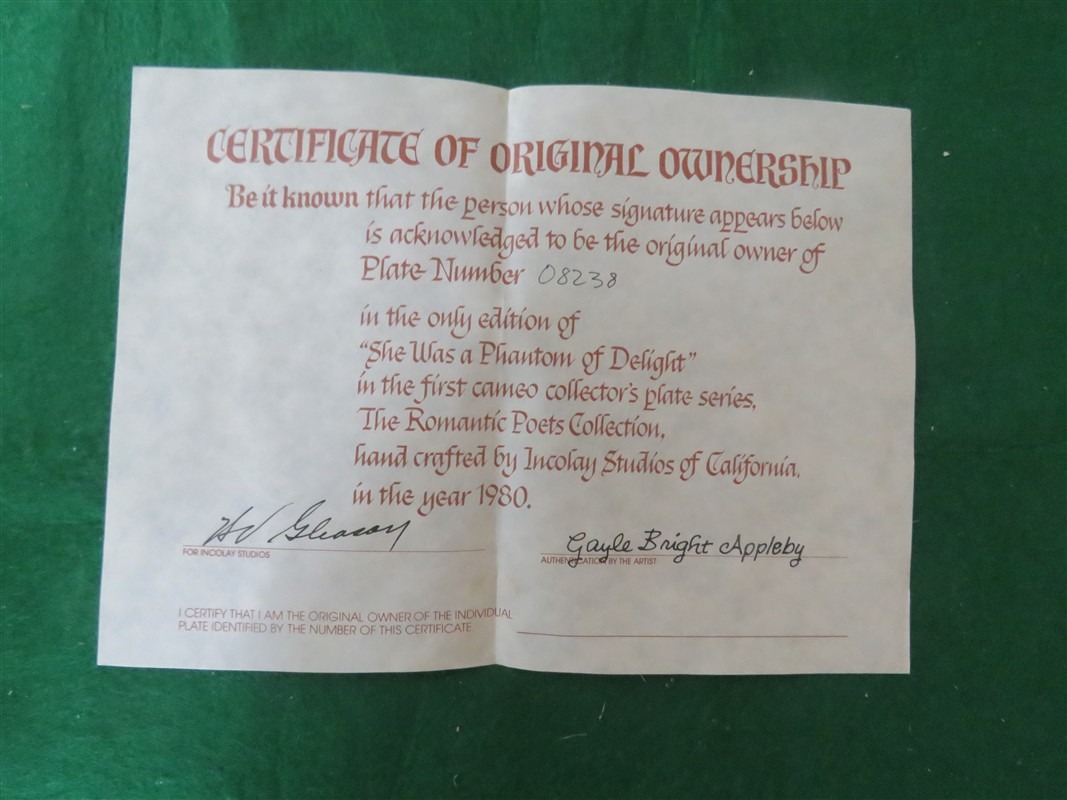 CERTIFICATE OF ORIGINAL OWNERSHIP
Be it known that the person whose signature appears below
is acknowledged to be the original owner of
Plate Number 08238
in the only edition of
"She Was a Phantom of Delight"
in the first cameo collector's plate series,
The Romantic Poets Collection,
hand crafted by Incolay Studios of California,
in the year 1980.
Gleason
FOR INCOLAY STUDIOS
Gayle Bright Appleby
AUTHENTICATION BY THE ARTIST
I CERTIFY THAT I AM THE ORIGINAL OWNER OF THE INDIVIDUAL
PLATE IDENTIFIED BY THE NUMBER OF THIS CERTIFICATE.